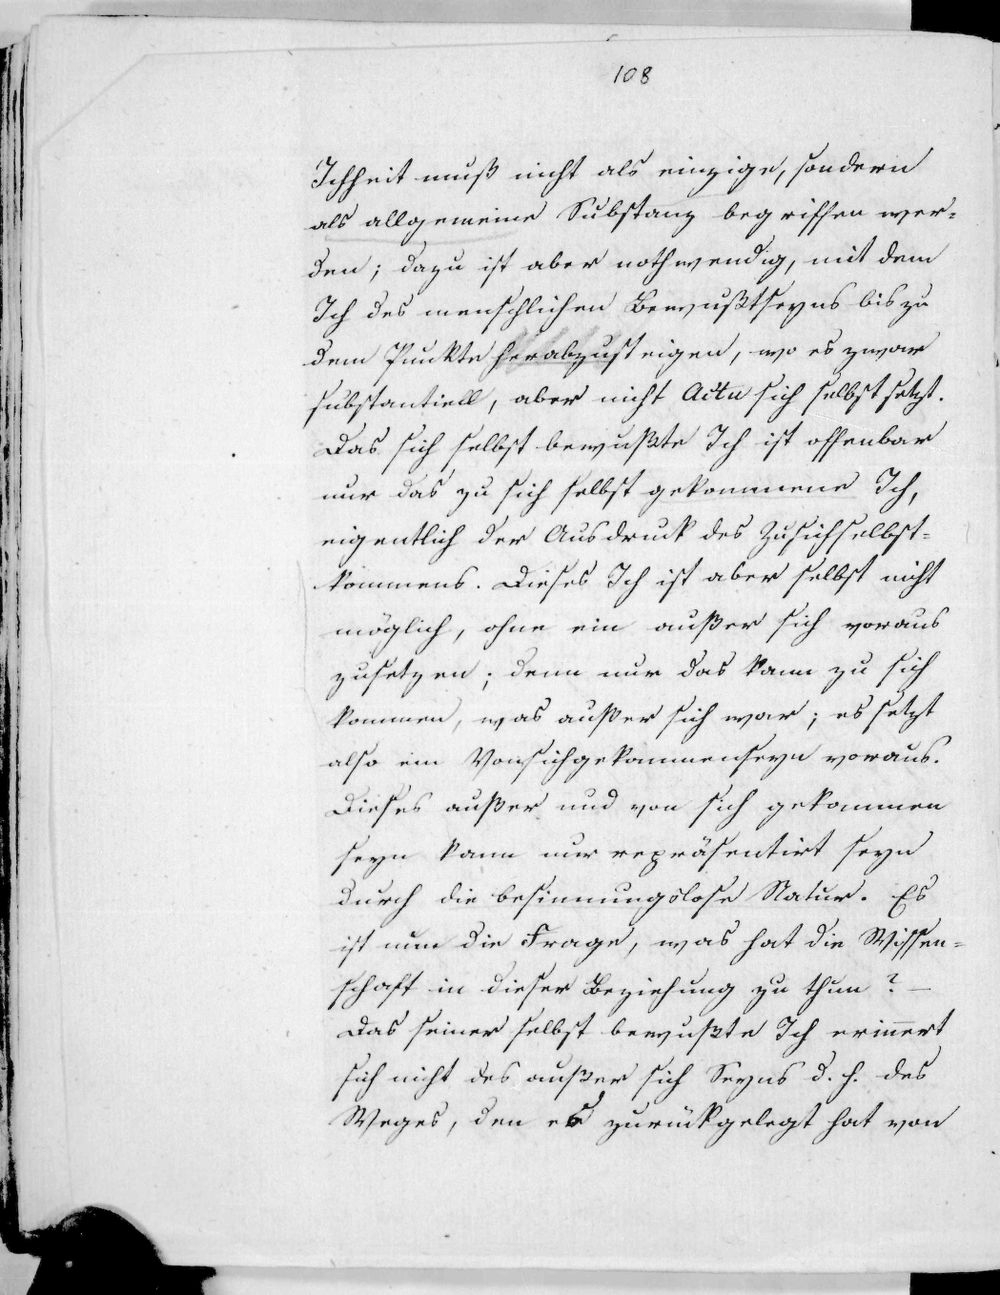 108
Ichheit muß nicht als einzige, sondern
als allgemeine Substanz begriffen wer-
den; dazu ist aber nothwendig, mit dem
Ich des menschlichen Bewußtseyns bis zu
dem Punkte herabzusteigen, wo es zwar
substantiell, aber nicht Actu sich selbst setzt.
Das sich selbst bewußte Ich ist offenbar
nur das zu sich selbst gekommene Ich,
eigentlich der Ausdruck des Zusichselbst-
kommens. Dieses Ich ist aber selbst nicht
möglich, ohne ein außer sich voraus
zusetzen; denn nur das kann zu sich
kommen, was außer sich war; es setzt
also ein Vonsichgekommenseyn voraus.
Dieses außer und von sich gekommen
seyn kann nur repräsentirt seyn
durch die besinnungslose Natur. Es
ist nun die Frage, was hat die Wissen-
schaft in dieser Beziehung zu thun? –
Das seiner selbst bewußte Ich erinnert
sich nicht des außer sich Seyns d. h. des
Weges, den es zurückgelegt hat von